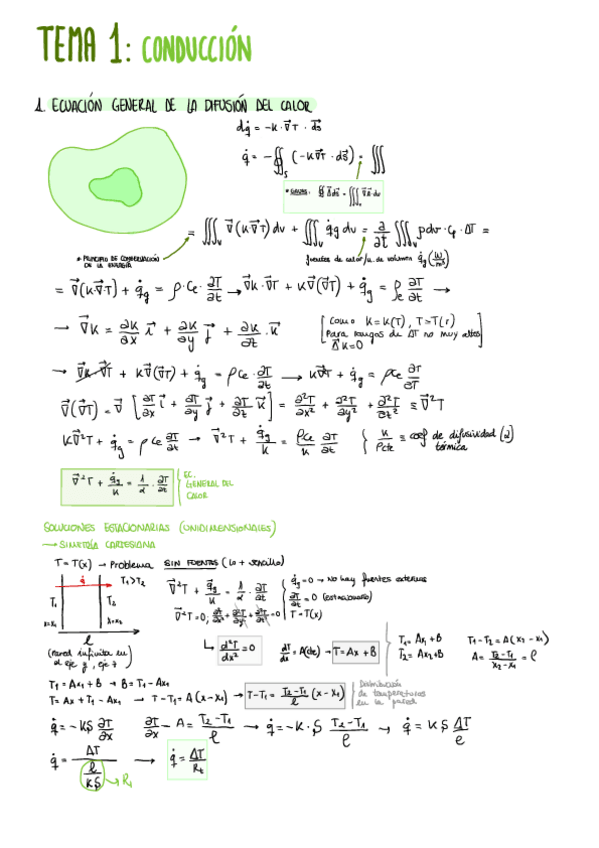 TEMA 1: CONDUCCIÓN
1. ECUACIÓN GENERAL DE LA DIFUSIÓN DEL CALOR
dq̇ = -K · ∇⃗T · ds⃗
q̇ = -∯s (-K∇⃗T · ds⃗) = ∭
* GAUSS: ∯ A⃗ ds⃗ = ∭v ∇⃗A⃗ · dv
= ∭v ∇⃗(K∇⃗T) dv + ∭v q̇g dv = ∂/∂t ∭v ρdv · Ce · ΔT =
* PRINCIPIO DE CONSERVACIÓN DE LA ENERGÍA
fuentes de calor/u. de volumen q̇g (W/m³)
= ∇⃗(K·∇⃗·T) + q̇g = ρ · Ce · ∂T/∂t → ∇⃗K · ∇⃗T + K∇⃗(∇⃗T) + q̇g = ρCe ∂T/∂t →
→ ∇⃗K = ∂K/∂x i⃗ + ∂K/∂y j⃗ + ∂K/∂t · K⃗
[Como K = K(T), T = T(r)
Para rangos de ΔT no muy altos
Δ⃗K = 0]
→ ∇⃗K · ∇⃗T + K∇⃗(∇⃗T) + q̇g = ρCe · ∂T/∂t → K∇⃗T + q̇g = ρCe ∂T/∂T
∇⃗(∇⃗T) = ∇⃗ [∂T/∂x i⃗ + ∂T/∂y j⃗ + ∂T/∂t K⃗] = ∂²T/∂x² + ∂²T/∂y² + ∂²T/∂t² ≡ ∇⃗²T
K∇⃗²T + q̇g = ρCe ∂T/∂t → ∇⃗²T + q̇g/K = ρCe/K ∂T/∂t { K/ρCe ≡ coef de difusividad (α) térmica
∇⃗²T + q̇g/K = 1/α · ∂T/∂t
EC. GENERAL DEL CALOR
SOLUCIONES ESTACIONARIAS (UNIDIMENSIONALES)
→ SIMETRÍA CARTESIANA
T = T(x) → Problema SIN FUENTES (lo + sencillo)
q̇
T₁ > T₂
T₁
T₂
x=x₁
x=x₂
l
(pared infinita en el eje y, eje z)
∇⃗²T + q̇g/K = 1/α · ∂T/∂t
{ q̇g = 0 → No hay fuentes externas
∂T/∂t = 0 (estacionario)
T = T(x)
∇⃗²T = 0; ∂²T/∂x² + ∂²T/∂y² + ∂²T/∂t² = 0
↳ d²T/dx² = 0
dT/dx = A(cte) → T = Ax + B
T₁ = Ax₁ + B
T₂ = Ax₂ + B
T₁ - T₂ = A(x₂ - x₁)
A = T₂ - T₁ / x₂ - x₁ = l
T₁ = Ax₁ + B → B = T₁ - Ax₁
T = Ax + T₁ - Ax₁ → T - T₁ = A(x - x₁) → T - T₁ = T₂ - T₁ / l (x - x₁)
Distribución de temperaturas en la pared
q̇ = -KS ∂T/∂x
∂T/∂x → A = T₂ - T₁ / l → q̇ = -K · S T₂ - T₁ / l → q̇ = KS ΔT/e
q̇ = ΔT / (l/KS) → q̇ = ΔT/Rt
Rt